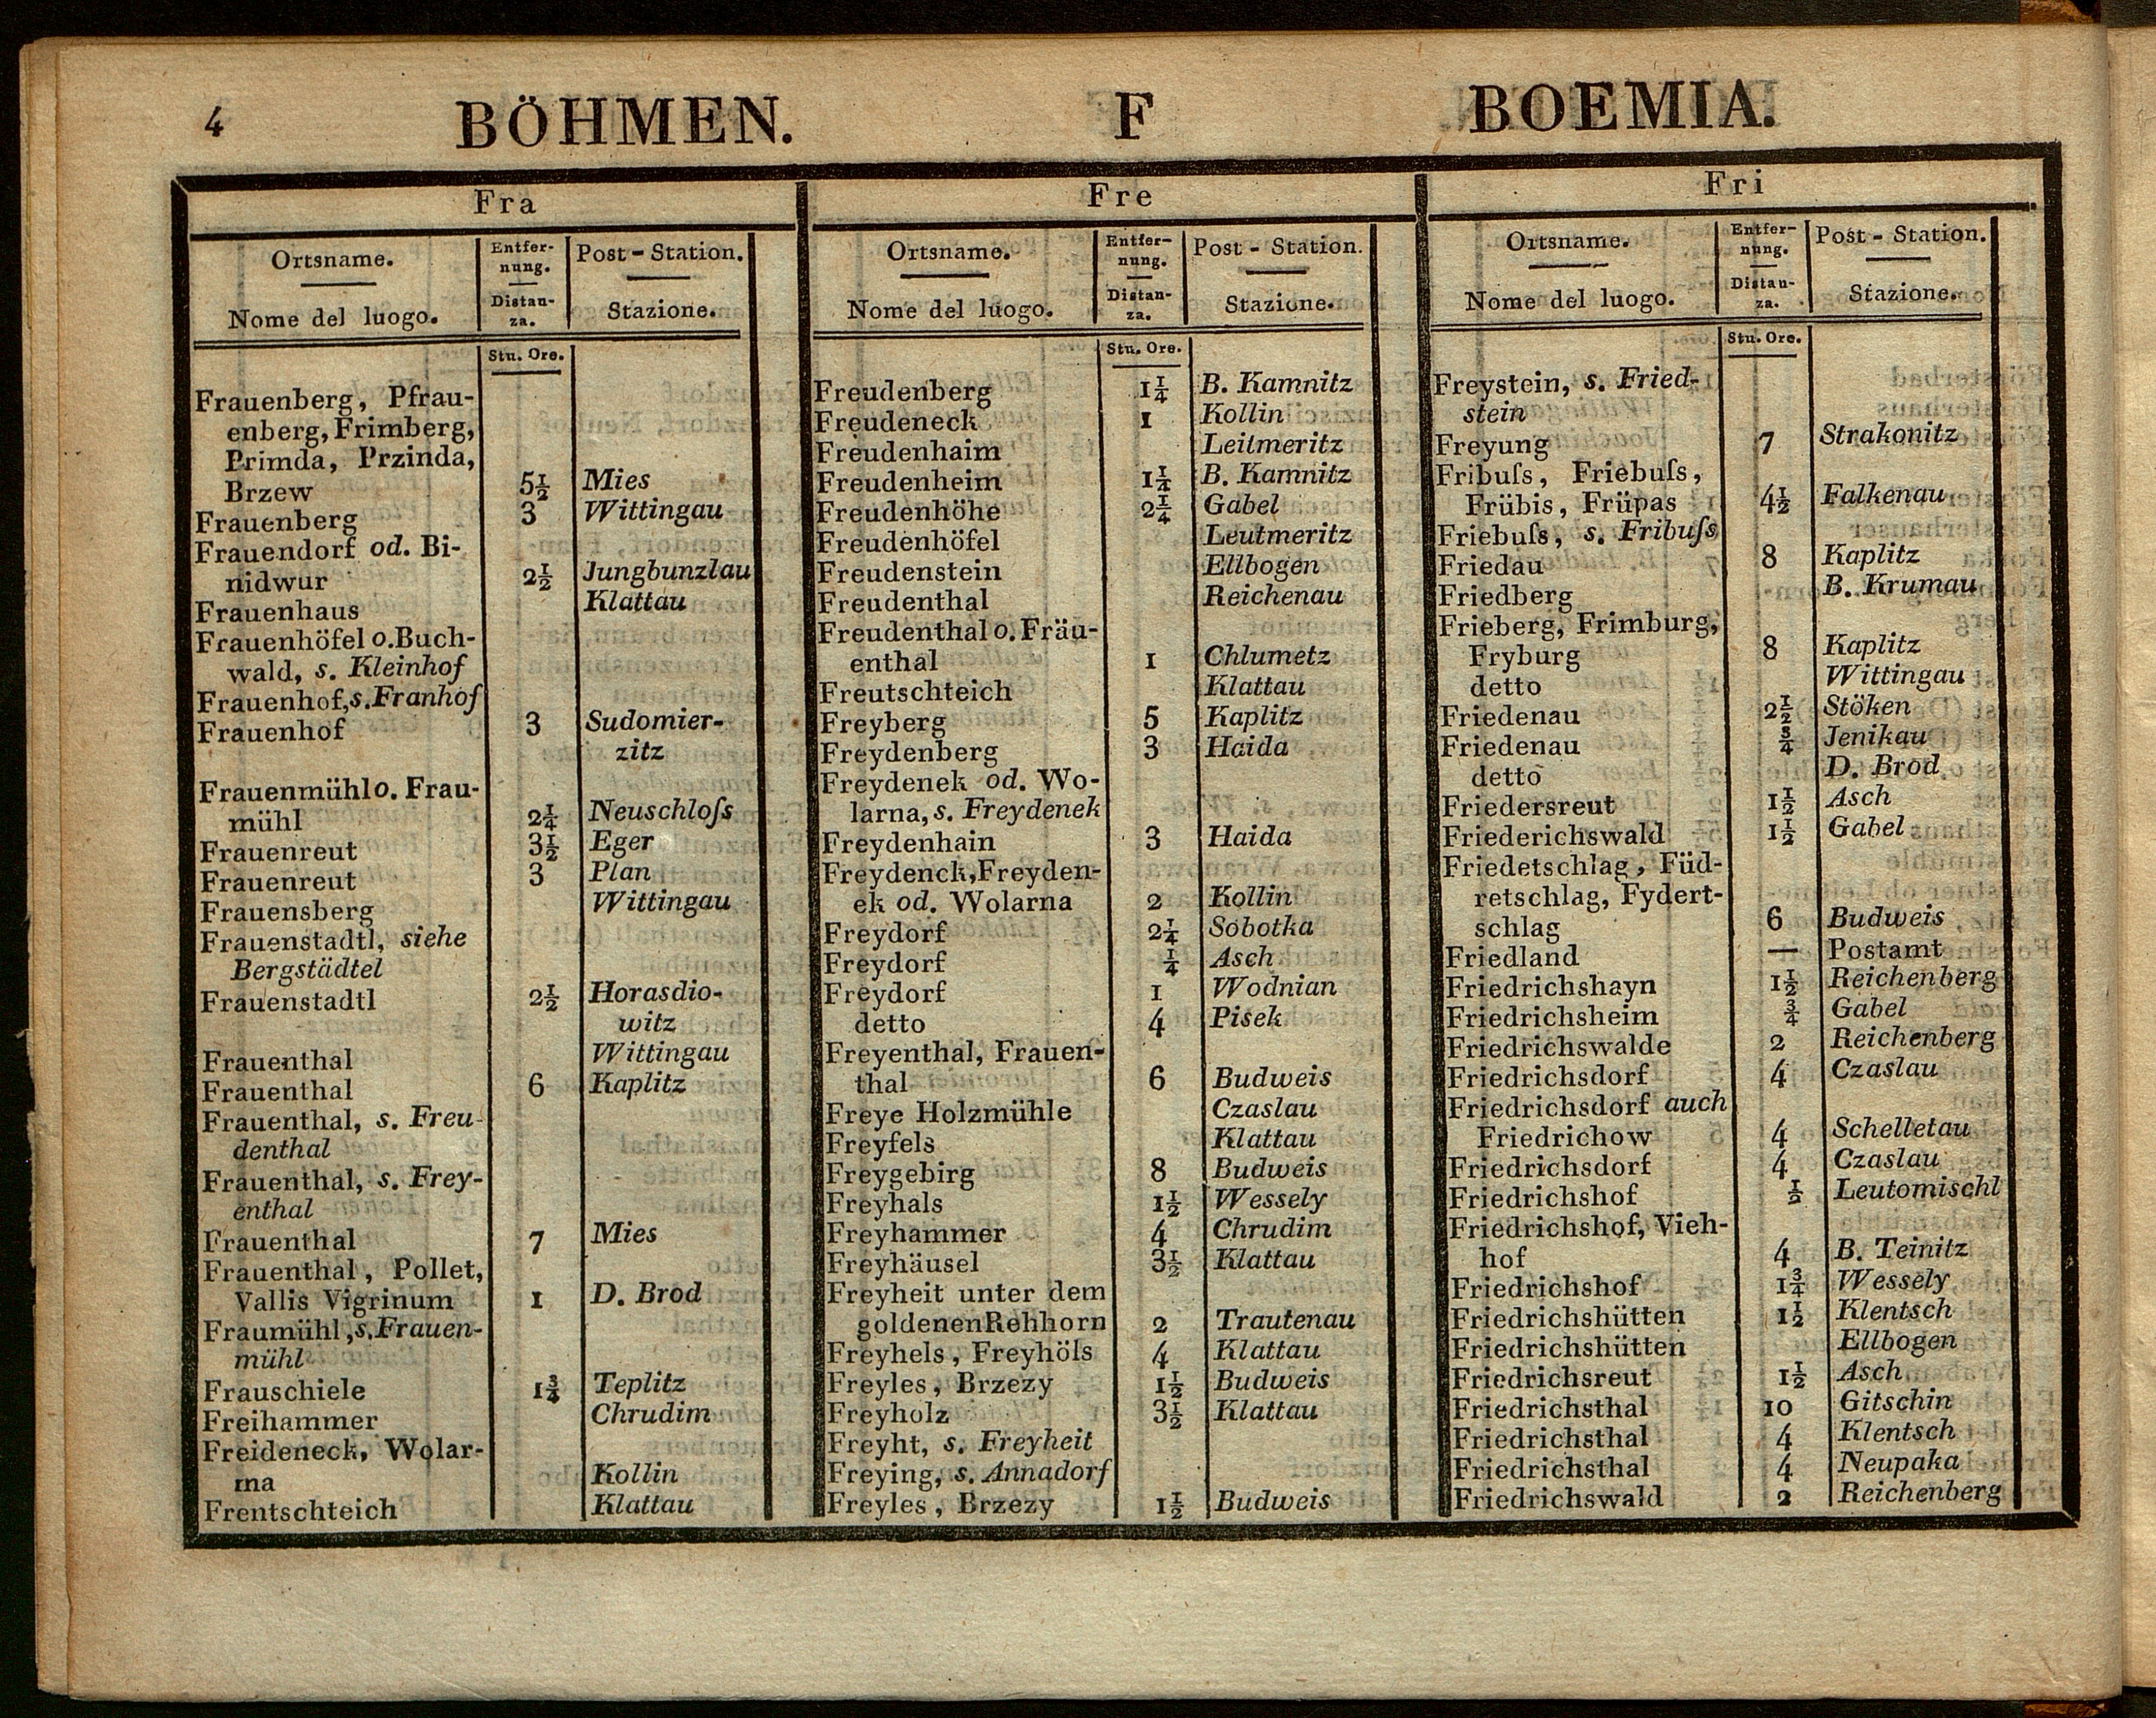 4 BÖHMEN. F BOEMIA.
Fra
Ortsname. Entfer- Post-Station.
nung.
Nome del luogo. Distan- Stazione.
za.
Stu. Ore.
Frauenberg, Pfrau-
enberg, Frimberg,
Primda, Przinda,
Brzew 5½ Mies
Frauenberg 3 Wittingau
Frauendorf od. Bi-
nidwur 2½ Jungbunzlau
Frauenhaus Klattau
Frauenhöfel o. Buch-
wald, s. Kleinhof
Frauenhof, s. Franhof
Frauenhof 3 Sudomier-
zitz
Frauenmühl o. Frau-
mühl 2¼ Neuschloſs
Frauenreut 3½ Eger
Frauenreut 3 Plan
Frauensberg Wittingau
Frauenstadtl, siehe
Bergstädtel
Frauenstadtl 2½ Horasdio-
witz
Frauenthal Wittingau
Frauenthal 6 Kaplitz
Frauenthal, s. Freu-
denthal
Frauenthal, s. Frey-
enthal
Frauenthal 7 Mies
Frauenthal, Pollet,
Vallis Vigrinum 1 D. Brod
Fraumühl, s. Frauen-
mühl
Frauschiele 1¾ Teplitz
Freihammer Chrudim
Freideneck, Wolar-
na Kollin
Frentschteich Klattau
Fre
Ortsname. Entfer- Post-Station.
nung.
Nome del luogo. Distan- Stazione.
za.
Stu. Ore.
Freudenberg 1¼ B. Kamnitz
Freudeneck 1 Kollin
Freudenhaim Leitmeritz
Freudenheim 1¼ B. Kamnitz
Freudenhöhe 2¼ Gabel
Freudenhöfel Leutmeritz
Freudenstein Ellbogen
Freudenthal Reichenau
Freudenthal o. Fräu-
enthal 1 Chlumetz
Freutschteich Klattau
Freyberg 5 Kaplitz
Freydenberg 3 Haida
Freydenek od. Wo-
larna, s. Freydenek
Freydenhain 3 Haida
Freydenck, Freyden-
ek od. Wolarna 2 Kollin
Freydorf 2¼ Sobotka
Freydorf ¼ Asch
Freydorf 1 Wodnian
detto 4 Pisek
Freyenthal, Frauen-
thal 6 Budweis
Freye Holzmühle Czaslau
Freyfels Klattau
Freygebirg 8 Budweis
Freyhals 1½ Wessely
Freyhammer 4 Chrudim
Freyhäusel 3½ Klattau
Freyheit unter dem
goldenen Rehhorn 2 Trautenau
Freyhels, Freyhöls 4 Klattau
Freyles, Brzezy 1½ Budweis
Freyholz 3½ Klattau
Freyht, s. Freyheit
Freying, s. Annadorf
Freyles, Brzezy 1½ Budweis
Fri
Ortsname. Entfer- Post-Station.
nung.
Nome del luogo. Distan- Stazione.
za.
Stu. Ore.
Freystein, s. Fried-
stein
Freyung 7 Strakonitz
Fribuſs, Friebuſs,
Frübis, Früpas 4½ Falkenau
Friebuſs, s. Fribuſs
Friedau 8 Kaplitz
Friedberg B. Krumau
Frieberg, Frimburg,
Fryburg 8 Kaplitz
detto Wittingau
Friedenau 2½ Stöken
Friedenau ¾ Jenikau
detto D. Brod
Friedersreut 1½ Asch
Friederichswald 1½ Gabel
Friedetschlag, Füd-
retschlag, Fydert-
schlag 6 Budweis
Friedland — Postamt
Friedrichshayn 1½ Reichenberg
Friedrichsheim ¾ Gabel
Friedrichswalde 2 Reichenberg
Friedrichsdorf 4 Czaslau
Friedrichsdorf auch
Friedrichow 4 Schelletau
Friedrichsdorf 4 Czaslau
Friedrichshof ½ Leutomischl
Friedrichshof, Vieh-
hof 4 B. Teinitz
Friedrichshof 1¾ Wessely
Friedrichshütten 1½ Klentsch
Friedrichshütten Ellbogen
Friedrichsreut 1½ Asch
Friedrichsthal 10 Gitschin
Friedrichsthal 4 Klentsch
Friedrichsthal 4 Neupaka
Friedrichswald 2 Reichenberg